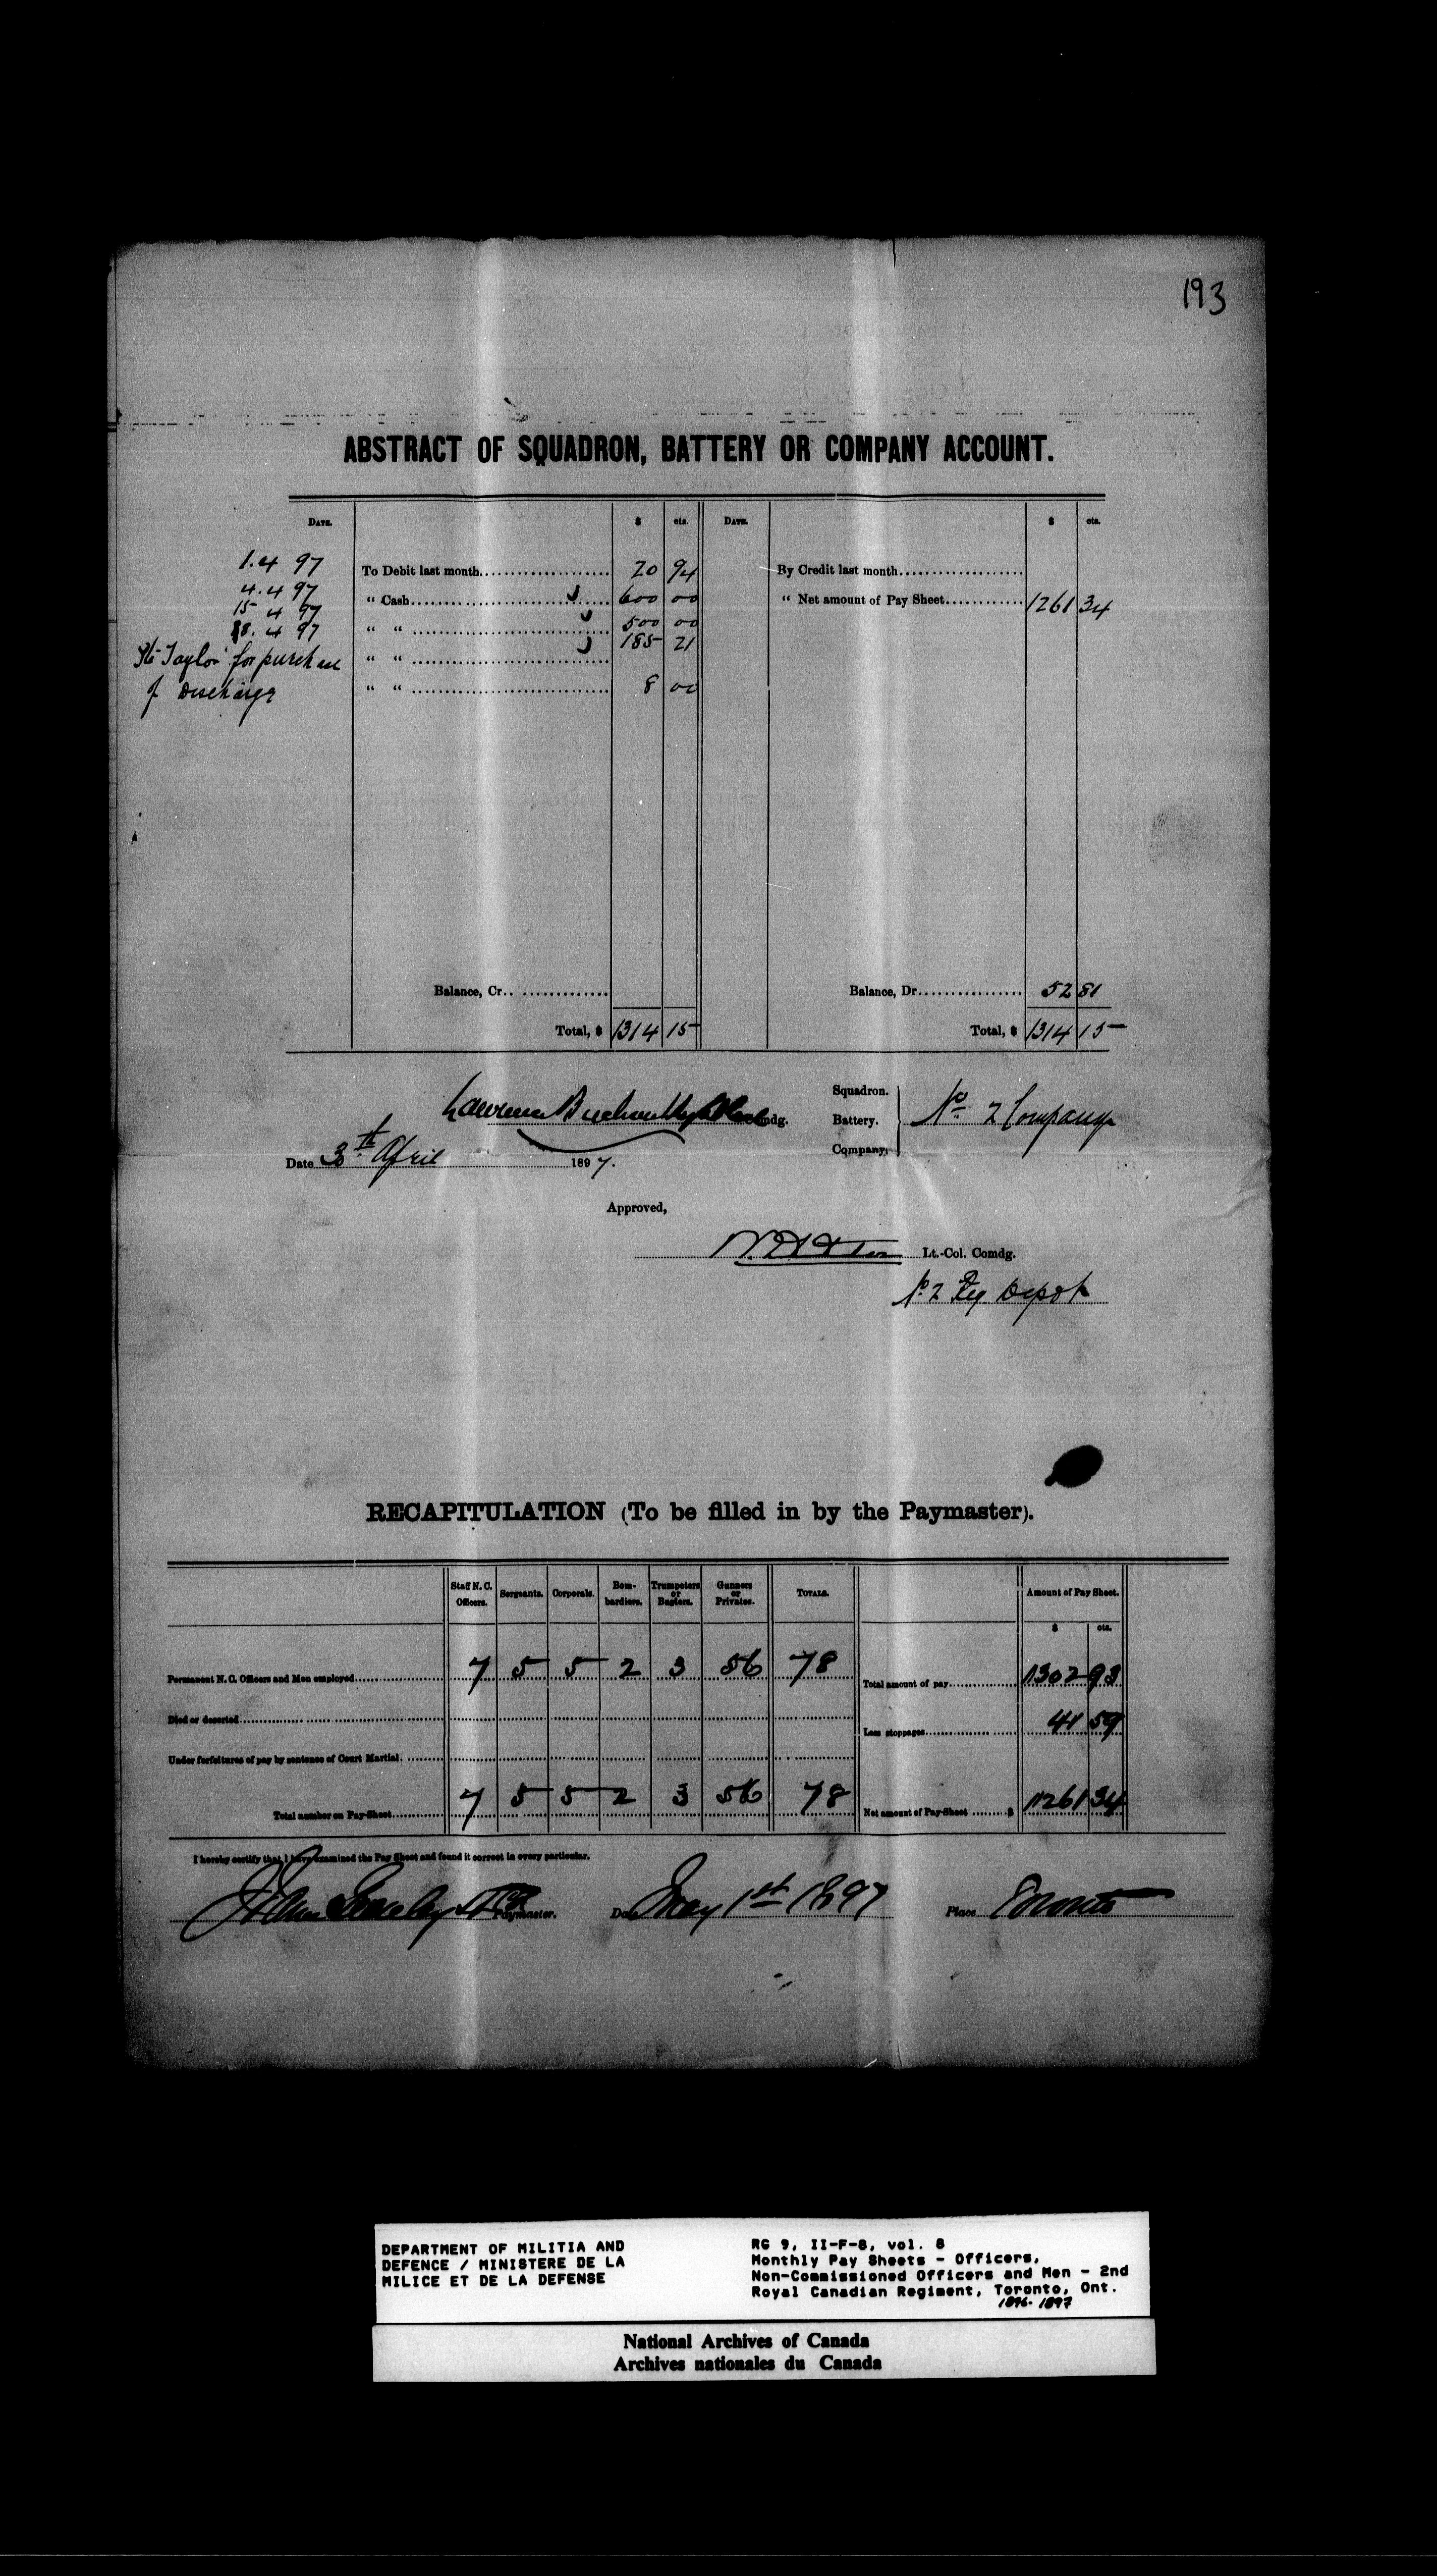 193
ABSTRACT OF SQUADRON, BATTERY OR COMPANY ACCOUNT.
DATE. $ cts. DATE. $ cts.
1.4 97 To Debit last month 20 94 By Credit last month
4.4 97 " Cash 600 00 " Net amount of Pay Sheet 1261 34
15 4 97 " " 500 00
28. 4 97 " " 185 21
Pte Taylor for purchase
of Discharge " " 8 00
Balance, Cr. Balance, Dr. 52 81
Total, $ 1314 15 Total, $ 1314 15
Squadron.
Lawrence Buchan Comdg. Battery. No 2 Company
Company.
Date 30th April 1897.
Approved,
Lt.-Col. Comdg.
No 2 Reg Depot
RECAPITULATION (To be filled in by the Paymaster).
Staff N. C. Officers. Sergeants. Corporals. Bombardiers. Trumpeters or Buglers. Gunners or Privates. TOTALS. Amount of Pay Sheet.
$ cts.
Permanent N. C. Officers and Men employed 7 5 5 2 3 56 78 Total amount of pay 1302 93
Died or deserted Less stoppages 41 59
Under forfeitures of pay by sentence of Court Martial.
Total number on Pay-Sheet 7 5 5 2 3 56 78 Net amount of Pay-Sheet $ 1261 34
I hereby certify that I have examined the Pay Sheet and found it correct in every particular.
Paymaster. Date May 1st 1897 Place Toronto
DEPARTMENT OF MILITIA AND
DEFENCE / MINISTERE DE LA
MILICE ET DE LA DEFENSE
RG 9, II-F-8, vol. 8
Monthly Pay Sheets - Officers,
Non-Commissioned Officers and Men - 2nd
Royal Canadian Regiment, Toronto, Ont.
1896-1897
National Archives of Canada
Archives nationales du Canada